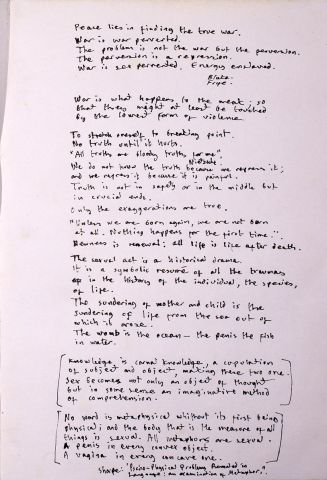 Peace lies in finding the true war.
War is war perverted.
The problem is not the war but the perversion.
The perversion is a repression.
War is sex perverted. Energy enslaved.
Blake-
Frye.
War is what happens to the weak; so
that they might at least be touched
by the lowest form of violence
To stretch oneself to breaking point.
No truth until it hurts.
"All truths are bloody truths for me".
Nietzsche.
We do not know the truth because we repress it;
and we repress it because it is painful.
Truth is not in safety or in the middle but
in crucial ends.
Only the exaggerations are true.
"Unless we are born again, we are not born
at all. Nothing happens for the first time."
Newness is renewal; all life is life after death.
The sexual act is a historical drama.
It is a symbolic resume of all the traumas
in the history of the individual, the species,
of life.
The sundering of mother and child is the
sundering of life from the sea out of
which it arose.
The womb is the ocean - the penis the fish
in water.
Knowledge is carnal knowledge, a copulation
of subject and object, making these two one.
Sex becomes not only an object of thought
but in some sense an imaginative method
of comprehension.
No word is metaphysical without its first being
physical; and the body that is the measure of all
things is sexual. All metaphors are sexual.
A penis in every convex object.
A vagina in every concave one.
Sharpe: "Psycho-Physical Problems Revealed in
Language: an examination of Metaphor."